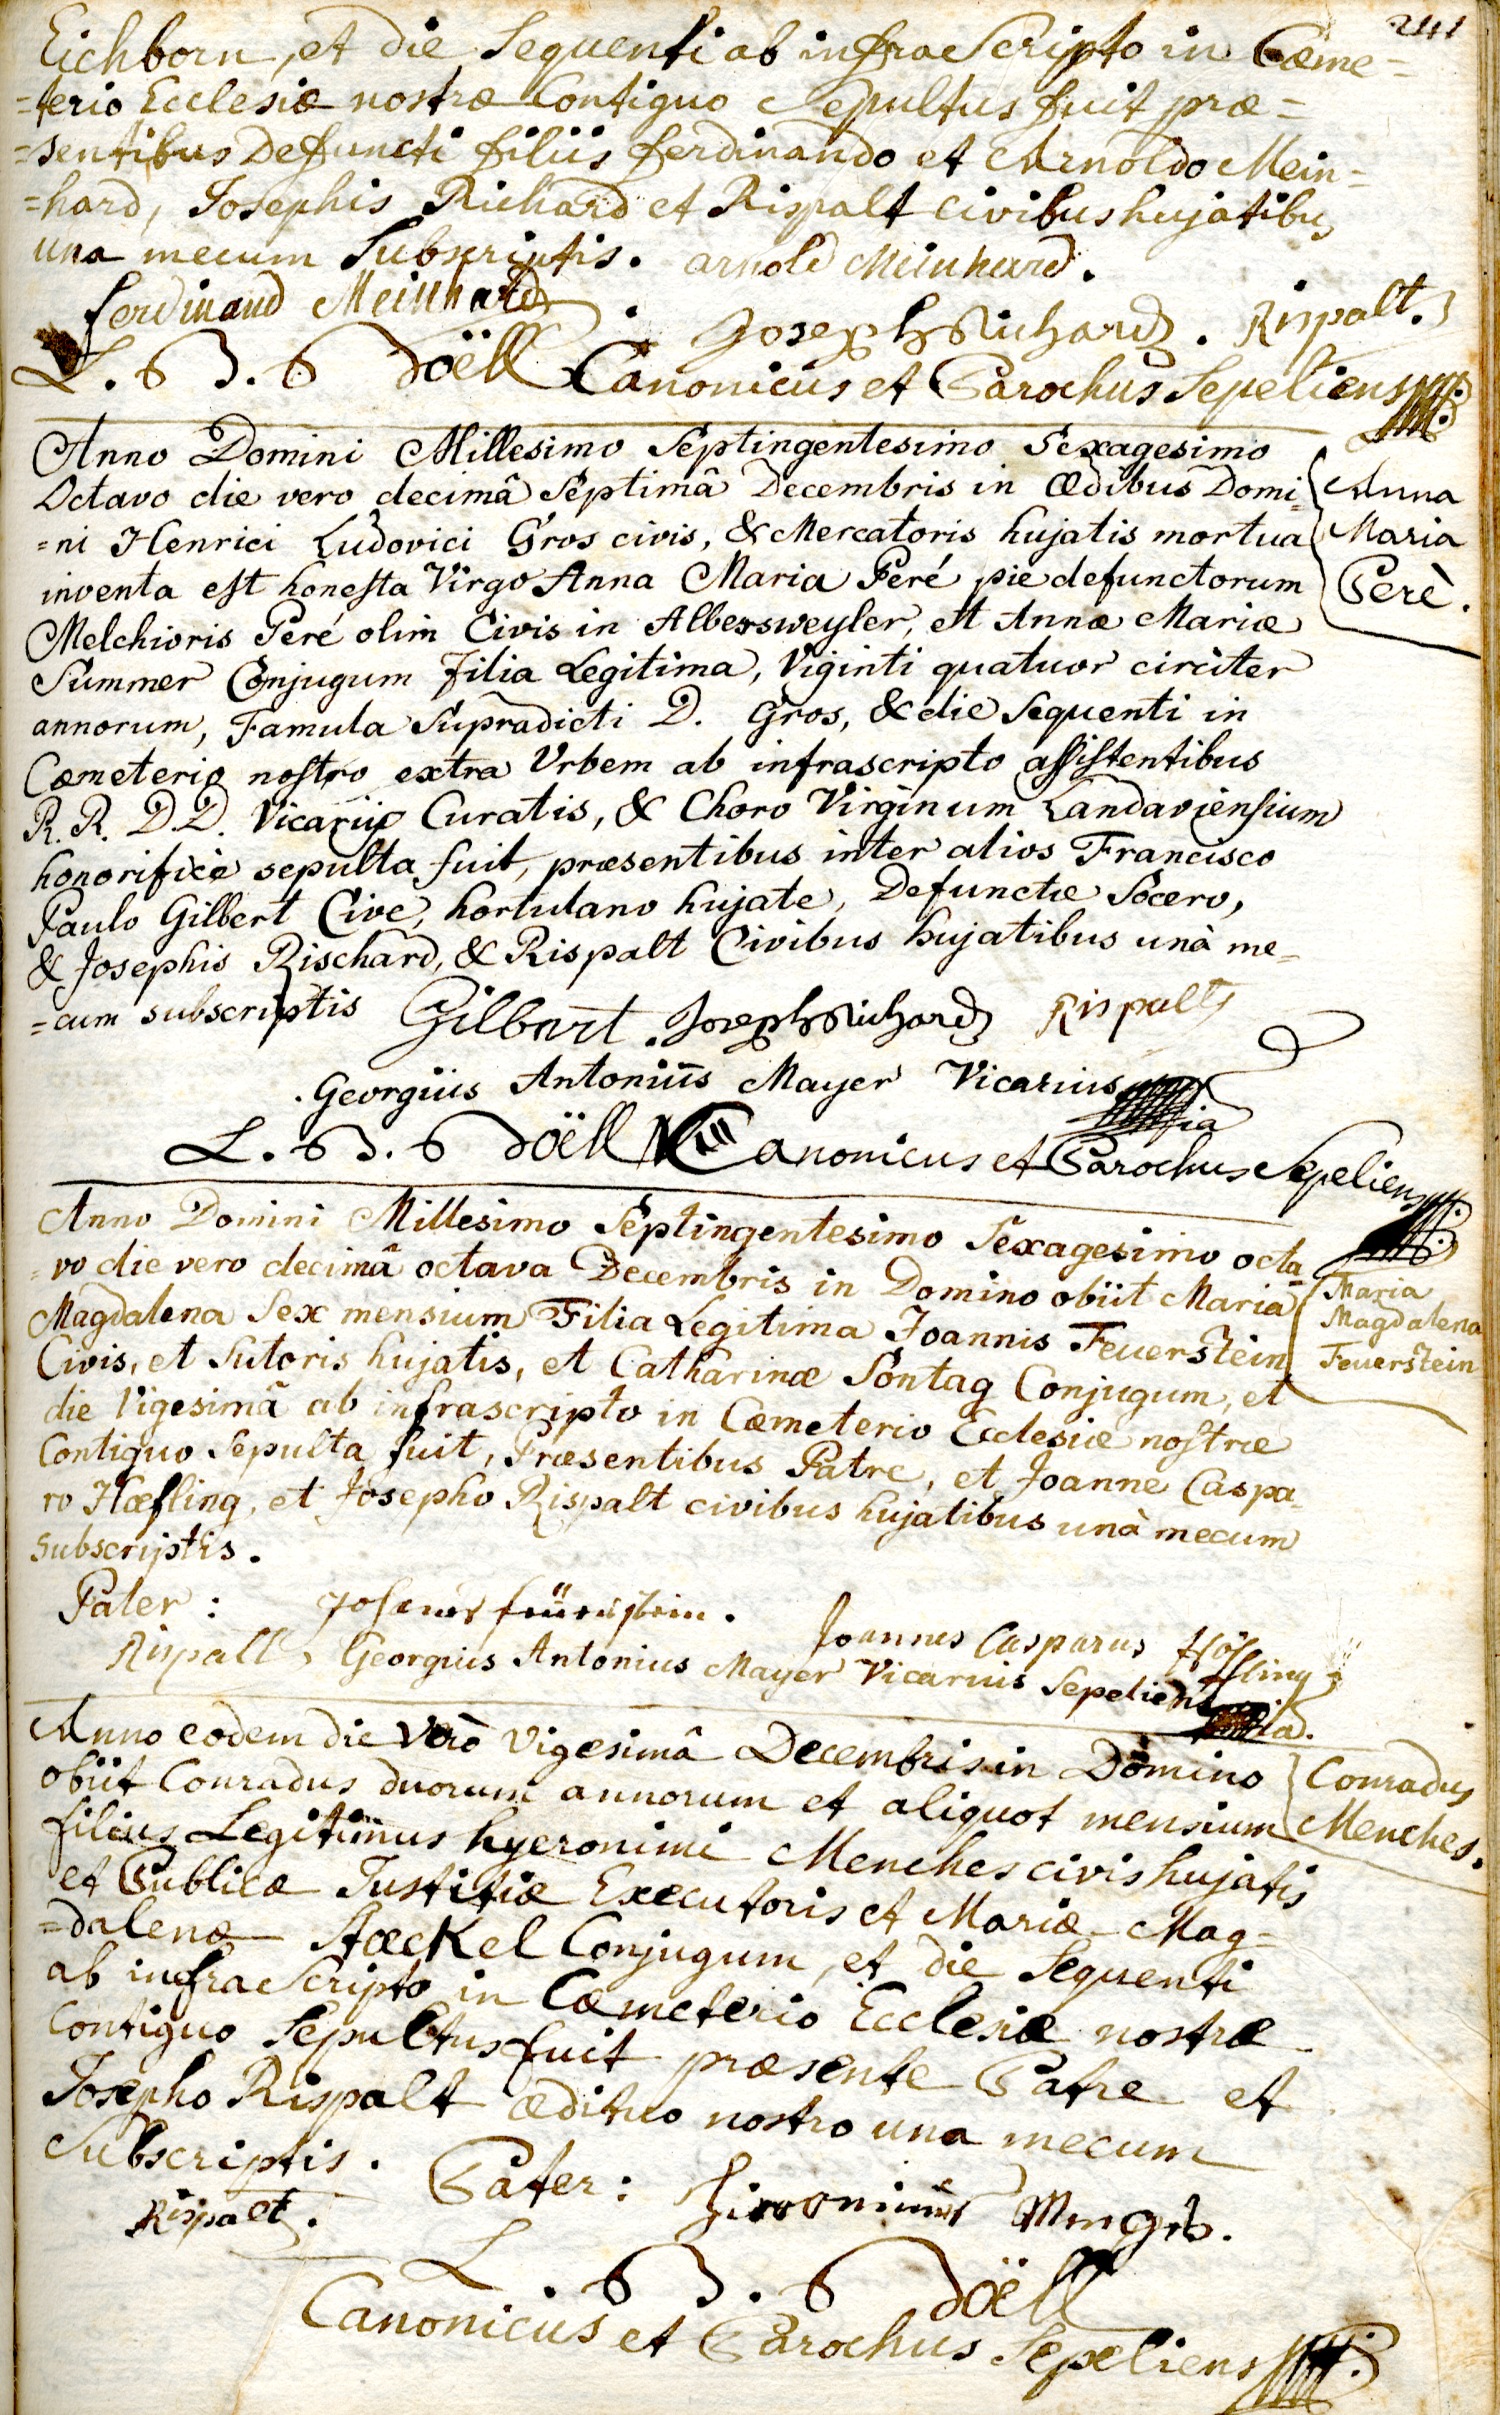 241
Eichborn, et die Sequenti ab infra Scripto in Cæme=
=terio Ecclesiæ nostræ Contiguo Sepultus fuit præ=
=sentibus Defuncti filiis ferdinando et Arnoldo Mein=
=hard, Josephis Richard et Rispalt civibus hujatibus
una mecum Subscriptis. arnold Meinhard.
ferdinand Meinhard. Joseph Richard. Rispalt.
L. B. B Doëll Canonicus et Parochus Sepeliens
Anno Domini Millesimo Septingentesimo Sexagesimo
Octavo die vero decimâ Septimâ Decembris in Ædibus Domi=
=ni Henrici Ludovici Gros civis, & Mercatoris hujatis mortua
inventa est honesta Virgo Anna Maria Peré pie defunctorum
Melchioris Peré olim Civis in Albersweyler, et Annæ Mariæ
Summer Conjugum Filia Legitima, Viginti quatuor circiter
annorum, Famula Supradicti D. Gros, & die Sequenti in
Cæmeterio nostro extra Vrbem ab infrascripto assistentibus
R. R. D.D. Vicariis Curatis, & Choro Virginum Landaviensium
honorifice sepulta fuit, præsentibus inter alios Francisco
Paulo Gilbert Cive, hortulano hujate, Defunctæ Socero,
& Josephis Rischard, & Rispalt Civibus hujatibus unà me=
=cum subscriptis Gilbert. Joseph Richard Rispalt
Anna
Maria
Perè.
Georgius Antonius Mayer Vicarius
L. B. B Doëll Canonicus et Parochus Sepeliens
Anno Domini Millesimo Septingentesimo Sexagesimo octa=
=vo die vero decimâ octava Decembris in Domino obiit Maria
Magdalena Sex mensium Filia Legitima Joannis Feuerstein
Civis, et Sutoris hujatis, et Catharinæ Sontag Conjugum, et
die Vigesimâ ab infrascripto in Cæmeterio Ecclesiæ nostræ
Contiguo Sepulta fuit, Præsentibus Patre, et Joanne Caspa=
ro Hæfling, et Josepho Rispalt civibus hujatibus unà mecum
Subscriptis.
Maria
Magdalena
Feuerstein
Pater: Joannes Joannes Casparus Höfling
Rispalt Georgius Antonius Mayer Vicarius Sepeliens
Anno eodem die Verò Vigesimâ Decembris in Domino
obiit Conradus duorum annorum et aliquot mensium
filius Legitimus hyeronimi Menches civis hujatis
et Publicæ Justitiæ Executoris et Mariæ Mag=
=dalenæ Stæckel Conjugum, et die Sequenti
ab infra Scripto in Cæmeterio Ecclesiæ nostræ
Contiguo Sepultus fuit præsente Patre et
Josepho Rispalt ædituo nostro una mecum
Subscriptis. Pater:
Rispalt.
Conradus
Menches.
L. B. B Doëll
Canonicus et Parochus Sepeliens